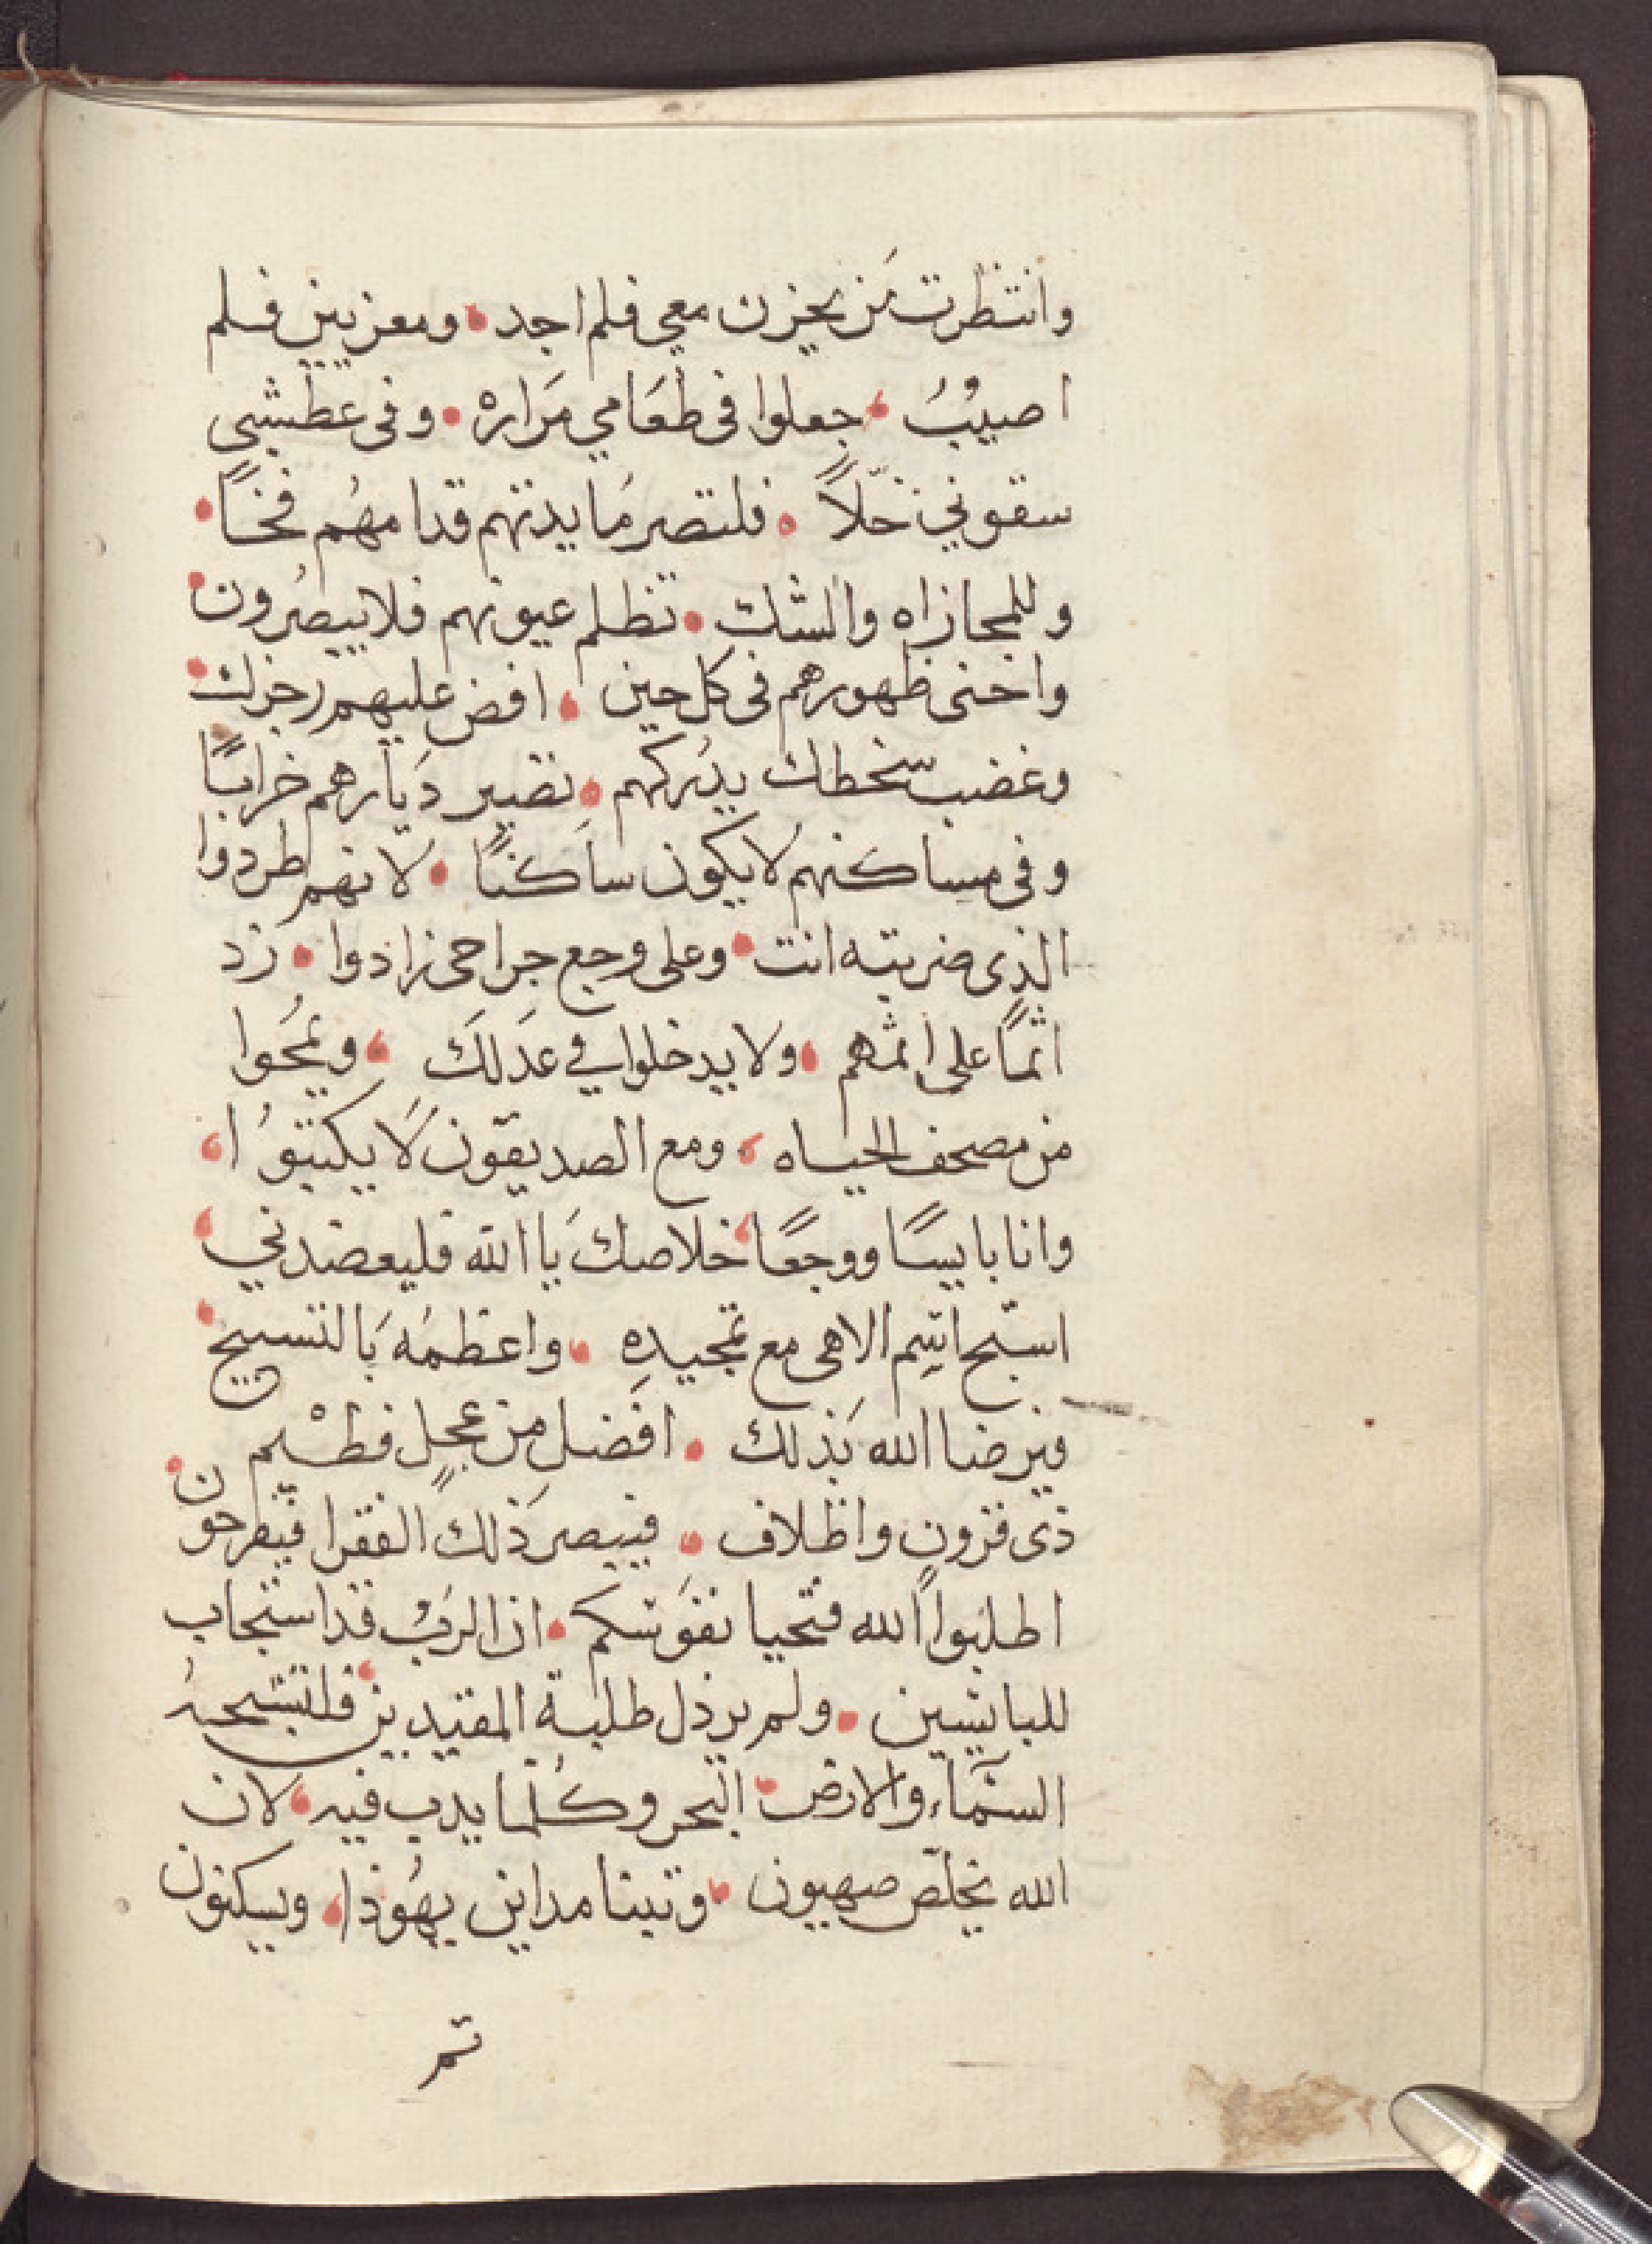 وانتظرت مَن يحزن معي فلم اجد • ومعزيين فلم
اصيبُ • جعلوا فى طعَامي مَراره • وفى عطشى
سقوني خلّاً • فلتصر مَايدتهم قدامهُم فخاً •
وللمجازاه والشك • تظلم عيونهم فلا يبصُرون •
واحنى ظهورهم فى كل حين • افض عليهم رجزك •
وغضب سخطك يدُركهم • تصير دَيارهم خرابًا
وفى مساكنهم لا يكون ساكنًا • لانهم طردوا
الذى ضربته انت • وعلى وجع جراحى زادوا • زد
اثمًا على اثمهم • ولا يدخلوا في عَدَلَكَ • ويمُحَوا
من مصحف الحياه • ومع الصديقون لَا يكتبوُا •
وانا بايسًا ووجعًا • خلاصك يَا الله فليعضدني •
اسبّح اسِم الاهى مع تمجيدِه • واعظمُه بَالتسبيح •
فيرضا الله بَذلك • افَضل مِن عجلٍ فطيْم
ذى قرونٍ واظلاف • فيبصر ذَلك الفقرا فيفرحون •
اطلبوا الله فتحيا نفوَسكم • ان الربْ قد استجاب
للبايسين • ولم يرذل طلبة المقيدين • فلتسُبحهُ
السمَآء والارض • البحر وكُلما يدب فيه • لان
الله يخلّص صهيون • وتبنا مداين يهُوذا • ويسكنون
تم